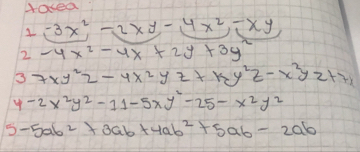 tarea
1 -3x² -2xy -4x² -xy
2 -4x² -4x + 2y + 3y²
3 7xy²z - 4x²yz + xy²z - x²yz + 7
4 -2x²y² - 11 - 5xy² - 25 - x²y²
5 -5ab² + 3ab + 4ab² + 5ab - 2ab